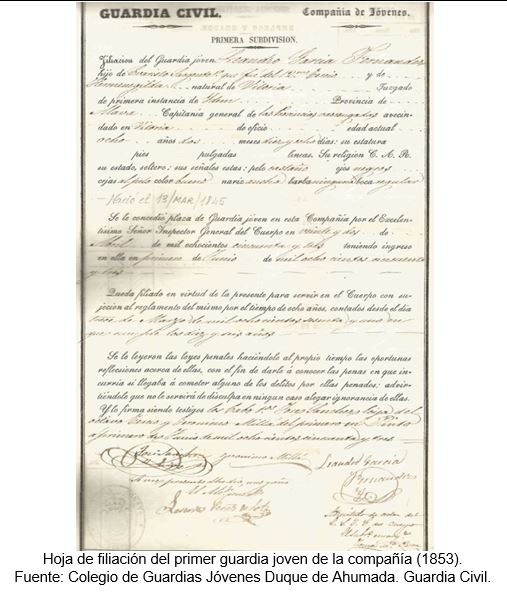 GUARDIA CIVIL. Compañia de Jóvenes.
PRIMERA SUBDIVISION.
Filiacion del Guardia jóven Leandro Garcia Fernandez
hijo de Sargento del Tercio y de
Hermenegilda natural de Vitoria Juzgado
de primera instancia de Idem Provincia de
Alava Capitania general de las Provincias vascongadas avecin-
dado en Vitoria de oficio edad actual
ocho años dos meses diez y ocho dias: su estatura
pies pulgadas lineas. Su religion C. A. R.
su estado, soltero: sus señales estas: pelo castaño ojos negros
cejas al pelo color bueno nariz ancha barba ninguna boca regular
- Nació el 13/MAR/1845
Se le concedió plaza de Guardia jóven en esta Compañia por el Excelen-
tisimo Señor Inspector General del Cuerpo en veinte y dos de
Abril de mil echocientos cincuenta y tres teniendo ingreso
en ella en primero de Junio de mil ocho cientos cincuenta
y tres
Queda filiado en virtud de la presente para servir en el Cuerpo con su-
jecion al reglamento del mismo por el tiempo de ocho años, contados desde el dia
trece de Marzo de mil ochocientos sesenta y uno en
que cumple los diez y seis años
Se le leyeron las leyes penales haciéndole al propio tiempo las oportunas
reflecsiones acerca de ellas, con el fin de darle á conocer las penas en que in-
curria si llegaba á cometer alguno de los delitos por ellas penados: advir-
tiéndole que no le servirá de disculpa en ningun caso alegar ignorancia de ellas.
Y lo firma siendo testigos José Sanchez del
octavo Tercio y Geronimo Millá del primero en Pinto
a primero de Junio de mil ocho cientos cincuenta y tres
José Sanchez Geronimo Millá Leandro Garcia
Fernandez
Hoja de filiación del primer guardia joven de la compañía (1853).
Fuente: Colegio de Guardias Jóvenes Duque de Ahumada. Guardia Civil.